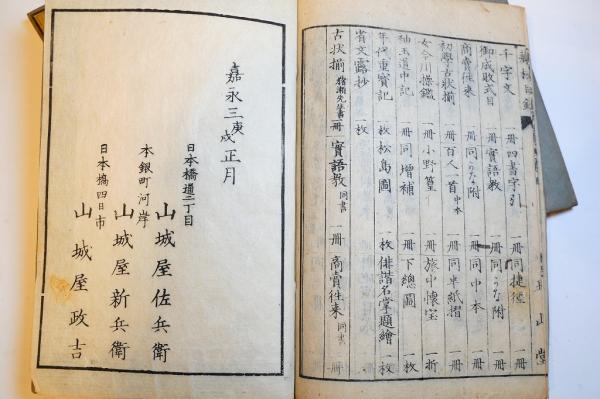 千字文 一冊 四書字引 一冊 同
御成敗式目 一冊 實語教 一冊 同 かな附 一冊
商賣往来 一冊 同 かな附 一冊 同 中本 一冊
初學古状揃 一冊 百人一首 中本 一冊 同 半紙摺 一冊
女今川操鑑 一冊 小野篁 一冊 旅中懐宝 一折
袖玉道中記 一冊 同 増補 一冊 下總圖 一枚
年代重寶記 一枚 松島圖 一枚 俳諧名掌題繪 一枚
省文露抄 一枚
古状揃 猪瀬先生書 一冊 實語教 同書 一冊 商賣往来 同書 一冊
嘉永三庚戌正月
日本橋通二丁目
山城屋佐兵衛
本銀町河岸
山城屋新兵衛
日本橋四日市
山城屋政吉